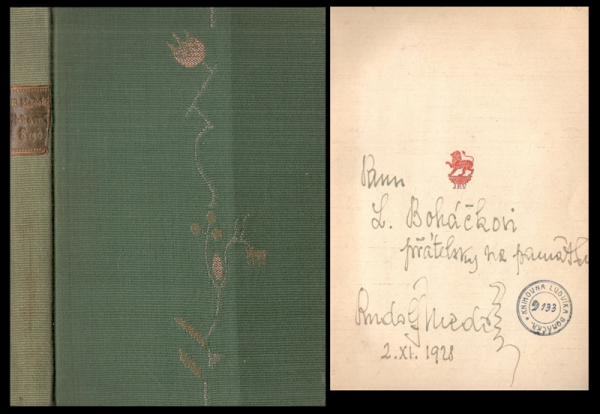 Panu
L. Boháčkovi
přátelsky na památku
Rudolf Medek
2. XI. 1928
KNIHOVNA LUDVÍKA BOHÁČKA
9133